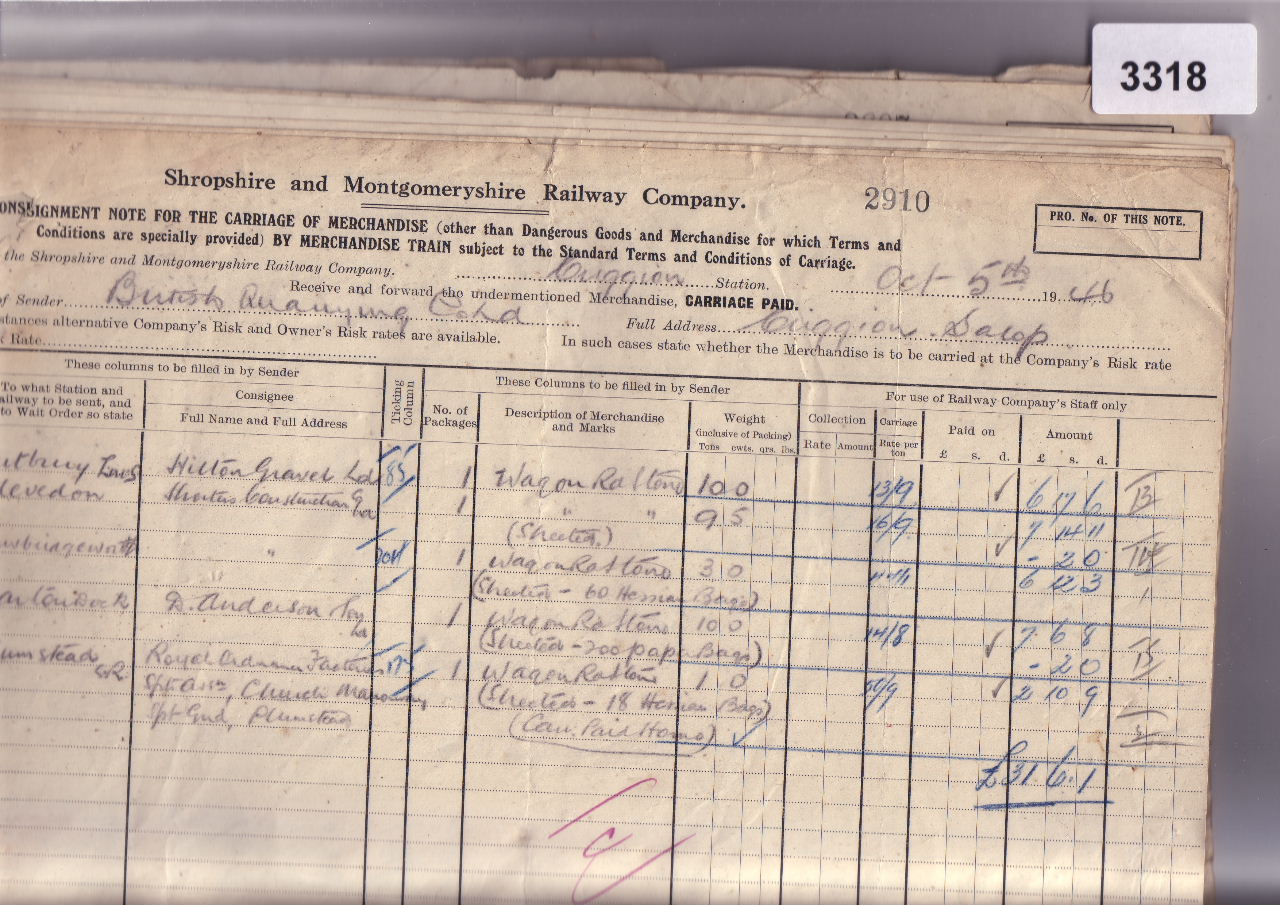 3318
Shropshire and Montgomeryshire Railway Company. 2910
PRO. No. OF THIS NOTE.
ONSIGNMENT NOTE FOR THE CARRIAGE OF MERCHANDISE (other than Dangerous Goods and Merchandise for which Terms and
Conditions are specially provided) BY MERCHANDISE TRAIN subject to the Standard Terms and Conditions of Carriage.
the Shropshire and Montgomeryshire Railway Company. Criggion Station. Oct 5th 1946
Receive and forward the undermentioned Merchandise, CARRIAGE PAID.
of Sender British Quarrying Co Ltd Full Address Criggion. Salop
stances alternative Company's Risk and Owner's Risk rates are available. In such cases state whether the Merchandise is to be carried at the Company's Risk rate
Rate
These columns to be filled in by Sender
Ticking Column
These Columns to be filled in by Sender
For use of Railway Company's Staff only
To what Station and
ailway to be sent, and
to Wait Order so state
Consignee
Full Name and Full Address
No. of
Packages
Description of Merchandise
and Marks
Weight
(inclusive of Packing)
Tons cwts. qrs. lbs.
Collection
Rate Amount
Carriage
Rate per
ton
Paid on
£ s. d.
Amount
£ s. d.
Hilton Gravel Ld 85 1 Wagon Ro Stone 10 0 13/9 6 17 6
levedon Construction Co Ld 1 " " 9 5 16/9 7 14 11
(Sheeted) - 2 0
" 1 Wagon Ro Stone 3 0 6 12 3
(Sheeted - 60 Hessian Bags)
Dock D. Anderson Ld 1 Wagon Ro Stone 10 0 14/8 7 6 8
(Sheeted - 200 paper Bags) - 2 0
umstead Royal Ordnance Factories 1 Wagon Ro Stone 1 0 50/9 2 10 9
S.R. Church Manorway (Sheeted - 18 Hessian Bags)
Plumstead (Carr. Paid Home)
£31 6. 1